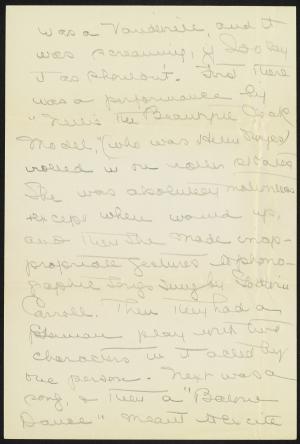 was a Vaudeville, and it
was screaming, if Dooley
it as shouldn't. First there
was a performance by
"Nellie the Beautiful Cloak
Model," (who was Helen Hayes)
rolled in on roller skates
She was absolutely motionless
except when wound up,
and then she made inap-
propriate gestures to phono-
graphic songs sung by
Carroll. Then they had a
German play with five
characters in it acted by
one person. Next was a
song, & then a "Balone
Dance" meant to be cute